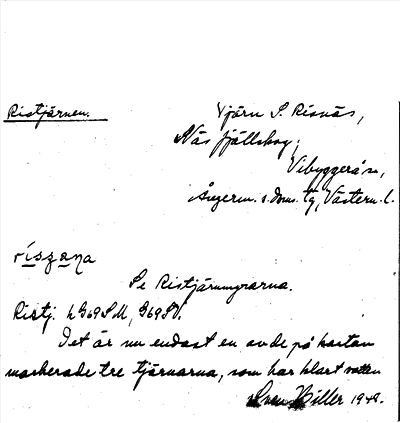 Ristjärnen.
Tjärn S. Risnäs,
Näs fjällskog,
Vibyggerå sn,
Ångerm. s. doms. tg, Västern. l.
riszana
Se Ristjärnmyrarna.
Ristj. h G69SM, G69SV.
Det är nu endast en av de på kartan
markerade tre tjärnarna, som har klart vatten
Sven Biller 1948.